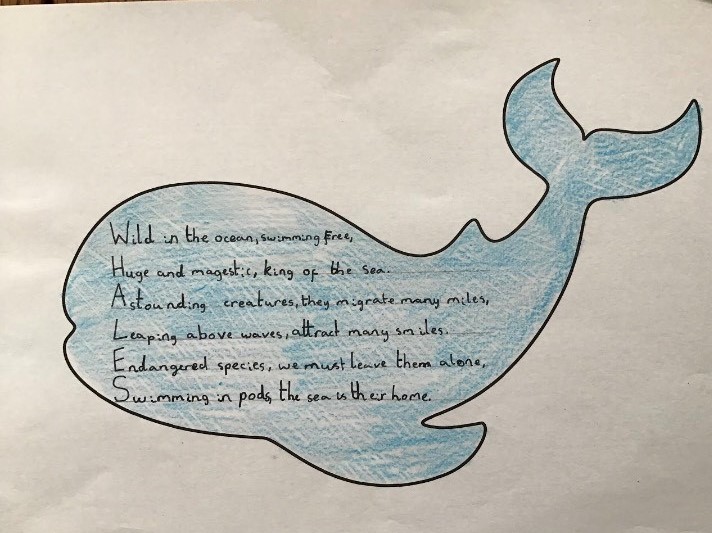 Wild in the ocean, swimming free,
Huge and magestic, king of the sea.
Astounding creatures, they migrate many miles,
Leaping above waves, attract many smiles.
Endangered species, we must leave them alone,
Swimming in pods, the sea is their home.